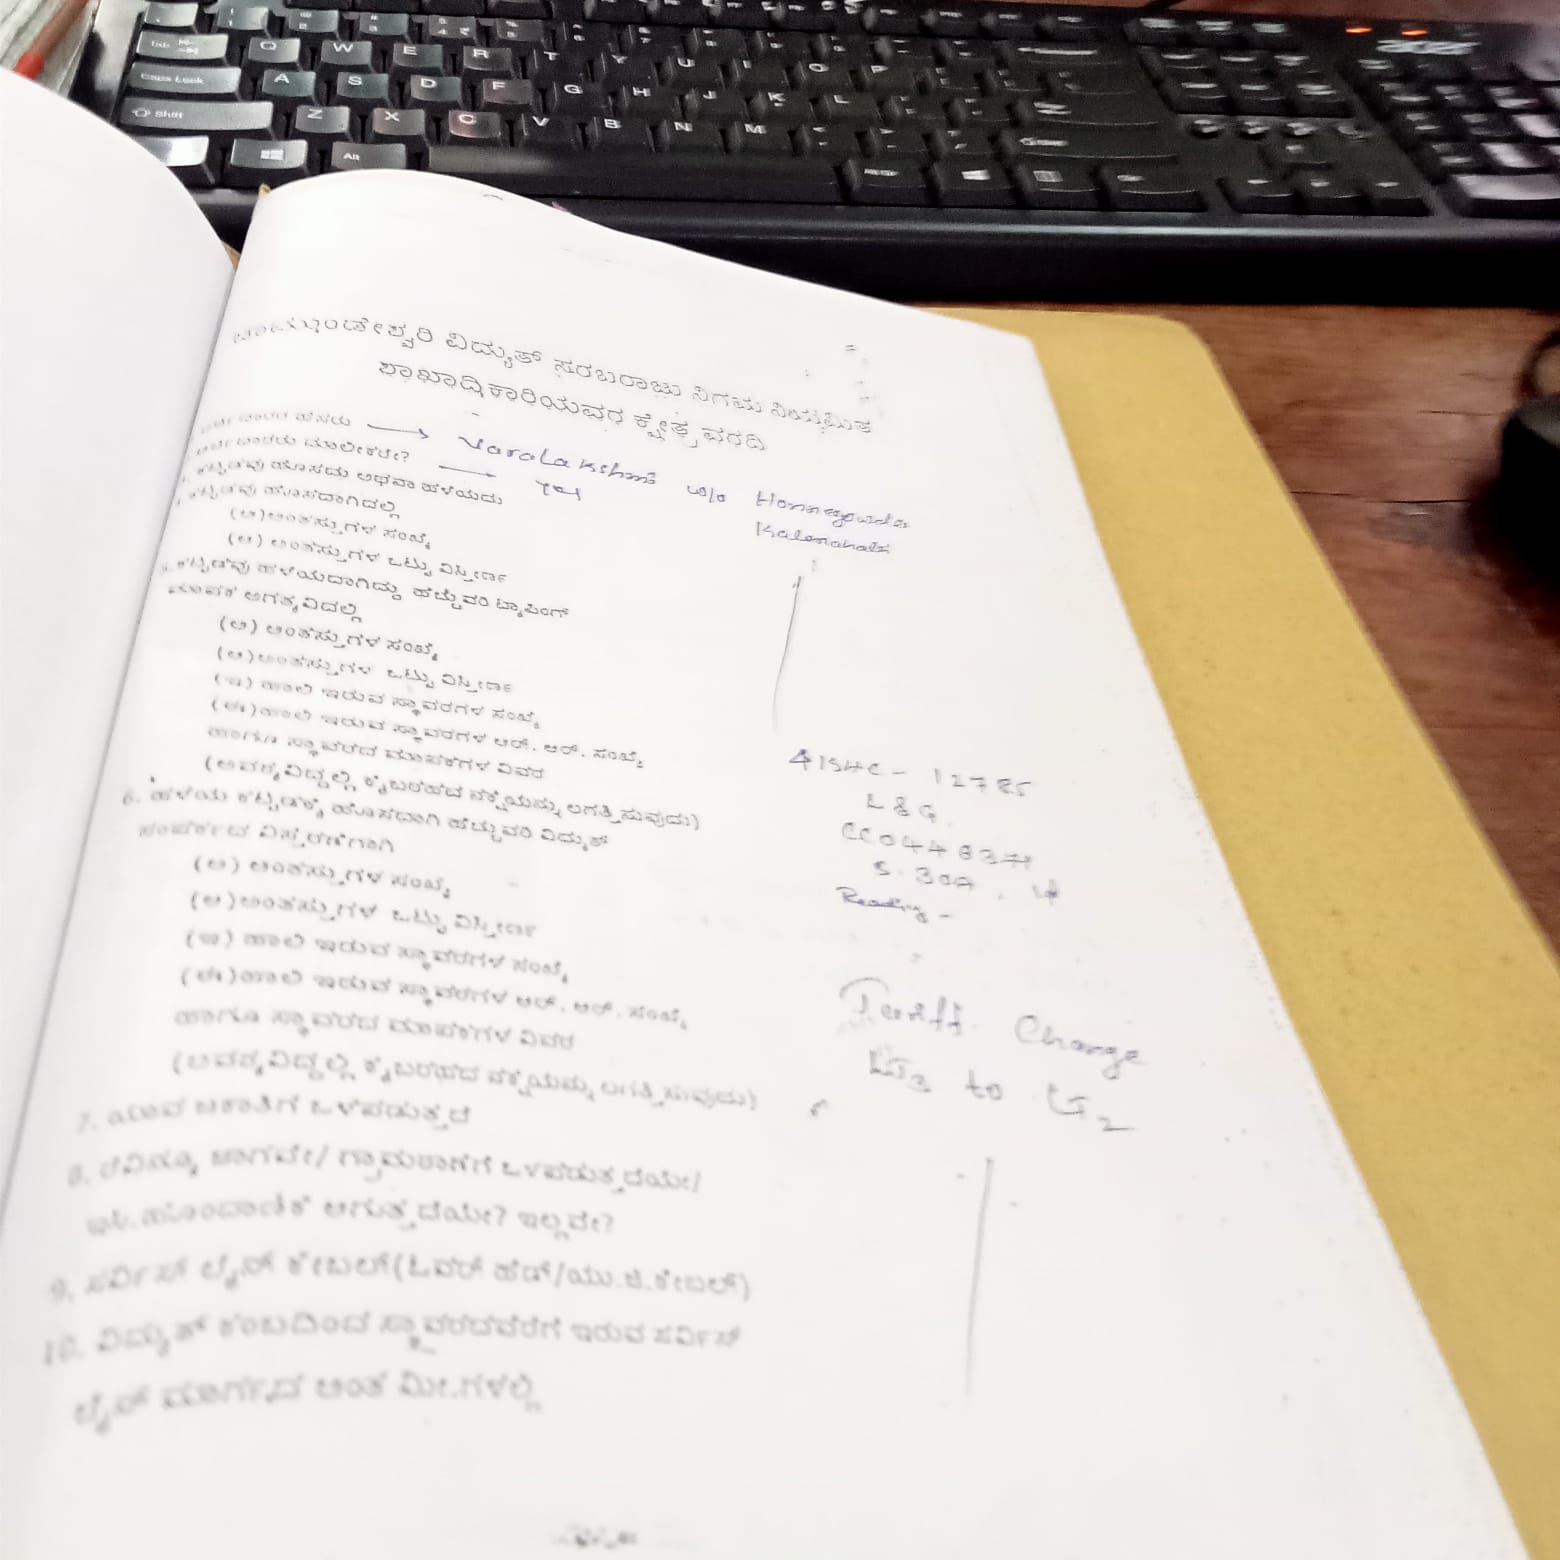 ಚಾಮುಂಡೇಶ್ವರಿ ವಿದ್ಯುತ್ ಸರಬರಾಜು ನಿಗಮ ನಿಯಮಿತ
ಶಾಖಾಧಿಕಾರಿಯವರ ಕ್ಷೇತ್ರ ವರದಿ
ಅರ್ಜಿದಾರರ ಹೆಸರು → Varalakshmi w/o Honnegowda
ಅರ್ಜಿದಾರರು ಮಾಲೀಕರೇ? → Yes
ಕಟ್ಟಡವು ಹೊಸದು ಅಥವಾ ಹಳೆಯದು
ಕಟ್ಟಡವು ಹೊಸದಾಗಿದಲ್ಲಿ
(ಅ) ಅಂತಸ್ತುಗಳ ಸಂಖ್ಯೆ
(ಆ) ಅಂತಸ್ತುಗಳ ಒಟ್ಟು ವಿಸ್ತೀರ್ಣ
5. ಕಟ್ಟಡವು ಹಳೆಯದಾಗಿದ್ದು ಹೆಚ್ಚುವರಿ ಟ್ಯಾಪಿಂಗ್
ಮಾಪಕ ಅಗತ್ಯವಿದಲ್ಲಿ
(ಅ) ಅಂತಸ್ತುಗಳ ಸಂಖ್ಯೆ
(ಆ) ಅಂತಸ್ತುಗಳ ಒಟ್ಟು ವಿಸ್ತೀರ್ಣ
(ಇ) ಹಾಲಿ ಇರುವ ಸ್ಥಾವರಗಳ ಸಂಖ್ಯೆ
(ಈ) ಹಾಲಿ ಇರುವ ಸ್ಥಾವರಗಳ ಆರ್. ಆರ್. ಸಂಖ್ಯೆ
ಹಾಗೂ ಸ್ಥಾವರದ ಮಾಪಕಗಳ ವಿವರ
(ಅವಶ್ಯವಿದ್ದಲ್ಲಿ ಕೈಬರಹದ ನಕ್ಷೆಯನ್ನು ಲಗತ್ತಿಸುವುದು)
6. ಹಳೆಯ ಕಟ್ಟಡಕ್ಕೆ ಹೊಸದಾಗಿ ಹೆಚ್ಚುವರಿ ವಿದ್ಯುತ್
ಸಂಪರ್ಕದ ವಿಸ್ತರಣೆಗಾಗಿ
(ಅ) ಅಂತಸ್ತುಗಳ ಸಂಖ್ಯೆ
(ಆ) ಅಂತಸ್ತುಗಳ ಒಟ್ಟು ವಿಸ್ತೀರ್ಣ
(ಇ) ಹಾಲಿ ಇರುವ ಸ್ಥಾವರಗಳ ಸಂಖ್ಯೆ
(ಈ) ಹಾಲಿ ಇರುವ ಸ್ಥಾವರಗಳ ಆರ್. ಆರ್. ಸಂಖ್ಯೆ
ಹಾಗೂ ಸ್ಥಾವರದ ಮಾಪಕಗಳ ವಿವರ
(ಅವಶ್ಯವಿದ್ದಲ್ಲಿ ಕೈಬರಹದ ನಕ್ಷೆಯನ್ನು ಲಗತ್ತಿಸುವುದು)
7. ಯಾವ ಜಕಾತಿಗೆ ಒಳಪಡುತ್ತದೆ
8. ರೆವಿನ್ಯೂ ಜಾಗವೇ/ ಗ್ರಾಮಠಾಣೆಗೆ ಒಳಪಡುತ್ತದೆಯೇ/
ಆಗುತ್ತದೆಯೇ? ಇಲ್ಲವೇ?
9. ಸರ್ವಿಸ್ ಲೈನ್ ಕೇಬಲ್(ಓವರ್ ಹೆಡ್/ಯು.ಜಿ.ಕೇಬಲ್)
10. ವಿದ್ಯುತ್ ಕಂಬದಿಂದ ಸ್ಥಾವರದವರೆಗೆ ಇರುವ ಸರ್ವಿಸ್
ಲೈನ್ ಮಾರ್ಗದ ಅಂತರ ಮೀ.ಗಳಲ್ಲಿ
12785
L&G
5.30A
Reading -
Tariff Change
LT3 to LT2